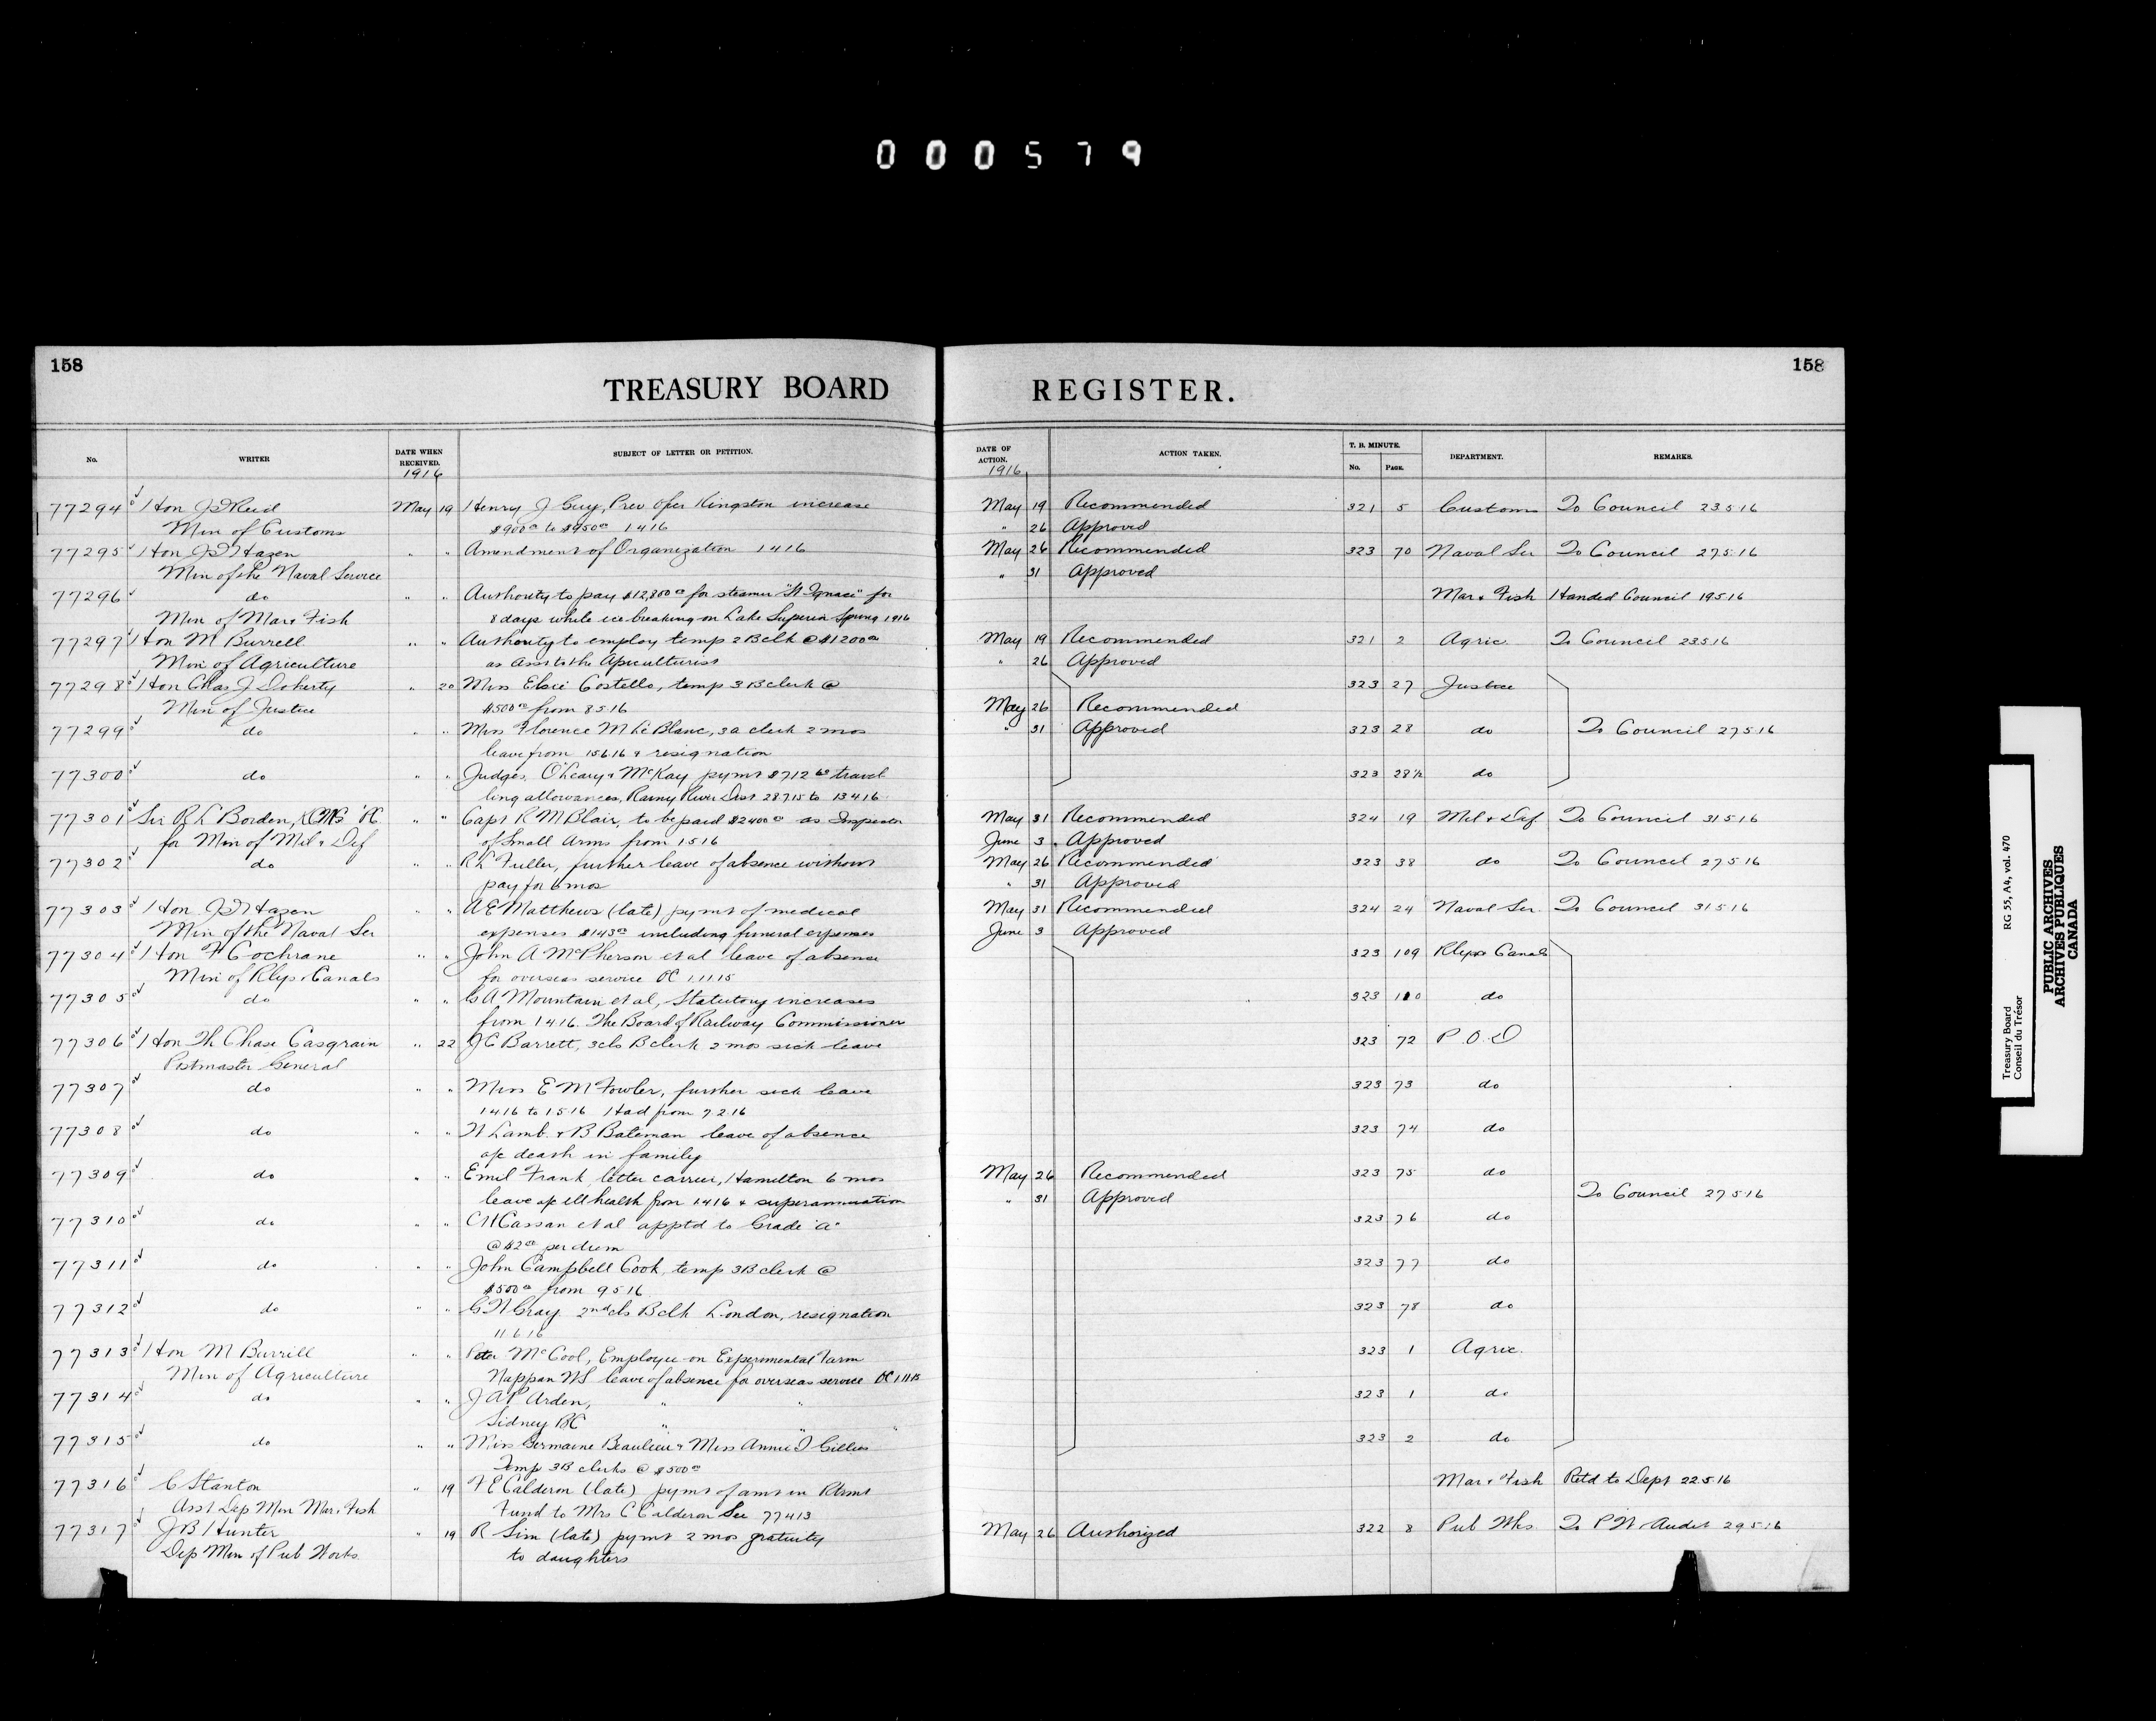 000579
158
158
TREASURY BOARD REGISTER.
No. WRITER DATE WHEN RECEIVED. SUBJECT OF LETTER OR PETITION. DATE OF ACTION. ACTION TAKEN. T. B. MINUTE. No. PAGE. DEPARTMENT. REMARKS.
1916 1916
77294 Hon J D Reid May 19 Henry J Guy, Prev Ofcr Kingston increase May 19 Recommended 321 5 Customs To Council 23 5 16
Min of Customs $900 00 to $950 00 1 4 16 " 26 Approved
77295 Hon J D Hazen " " Amendment of Organization 1 4 16 May 26 Recommended 323 70 Naval Ser To Council 27 5 16
Min of the Naval Service " 31 Approved
77296 do " " Authority to pay $12,800 00 for steamer "St Ignace" for Mar & Fish Handed Council 19 5 16
Min of Mar & Fish 8 days while ice breaking on Lake Superior Spring 1916
77297 Hon M Burrell " " Authority to employ temp 2B clk @ $1200 00 May 19 Recommended 321 2 Agric. To Council 23 5 16
Min of Agriculture as Asst to the Apiculturist " 26 Approved
77298 Hon Chas J Doherty " 20 Miss Elsie Costello, temp 3 B clerk @ 323 27 Justice
Min of Justice $500 00 from 8 5 16 May 26 Recommended
77299 do " " Miss Florence M Le Blanc, 3a clerk 2 mos " 31 Approved 323 28 do To Council 27 5 16
leave from 15 6 16 & resignation
77300 do " " Judges, O'Leary & McKay pymt $712 travel 323 28½ do
ling allowances, Rainy River Dist 28 7 15 to 13 4 16
77301 Sir R L Borden, KCMG PC " " Capt R M Blair, to be paid $2400 00 as Inspector May 31 Recommended 324 19 Mil & Def To Council 31 5 16
for Min of Mil & Def of Small Arms from 1 5 16 June 3 Approved
77302 do " " R L Fuller, further leave of absence without May 26 Recommended 323 38 do To Council 27 5 16
pay for 6 mos " 31 Approved
77303 Hon J D Hazen " " A E Matthews (late) pymt of medical May 31 Recommended 324 24 Naval Ser. To Council 31 5 16
Min of the Naval Ser expenses $143 00 including funeral expenses June 3 Approved
77304 Hon F Cochrane " " John A McPherson et al leave of absence 323 109 Rlys & Canals
Min of Rlys & Canals for overseas service OC 1.11.15
77305 do " " G A Mountain et al, Statutory increases 323 110 do
from 1 4 16. The Board of Railway Commissioner
77306 Hon Th Chase Casgrain " 22 J C Barrett, 3 cls B clerk 2 mos sick leave 323 72 P.O.D
Postmaster General
77307 do " " Miss E M Fowler, further sick leave 323 73 do
1 4 16 to 1 5 16 Had from 7 2 16
77308 do " " W Lamb & B Bateman leave of absence 323 74 do
a/c death in family
77309 do " " Emil Frank, letter carrier, Hamilton 6 mos May 26 Recommended 323 75 do
leave a/c ill health from 1 4 16 & superannuation " 31 Approved To Council 27 5 16
77310 do " " C H Cassan et al apptd to Grade "a" 323 76 do
@ $2 00 per diem
77311 do " " John Campbell Cook, temp 3B clerk @ 323 77 do
$500 00 from 9 5 16
77312 do " " G W Gray 2nd cls B clk London, resignation 323 78 do
11 6 16
77313 Hon M Burrill " " Peter McCool, Employee on Experimental Farm 323 1 Agric.
Min of Agriculture Nappan NS leave of absence for overseas service OC 1.11.15
77314 do " " J A P Arden, " " 323 1 do
Sidney BC " " "
77315 do " " Miss Germaine Beaulieu & Miss Annie D Gillies 323 2 do
Temp 3B clerks @ $500 00
77316 C Stanton " 19 F E Calderon (late) pymt of amt in Rtmt Mar & Fish Retd to Dept 22 5 16
Asst Dep Min Mar & Fish Fund to Mrs C Calderon See 77413
77317 J B Hunter " 19 R Sim (late) pymt 2 mos gratuity May 26 Authorized 322 8 Pub Wks. To P W Audit 29 5 16
Dep Min of Pub Works to daughters
Treasury Board RG 55, A4, vol. 470
Conseil du Trésor
PUBLIC ARCHIVES
ARCHIVES PUBLIQUES
CANADA